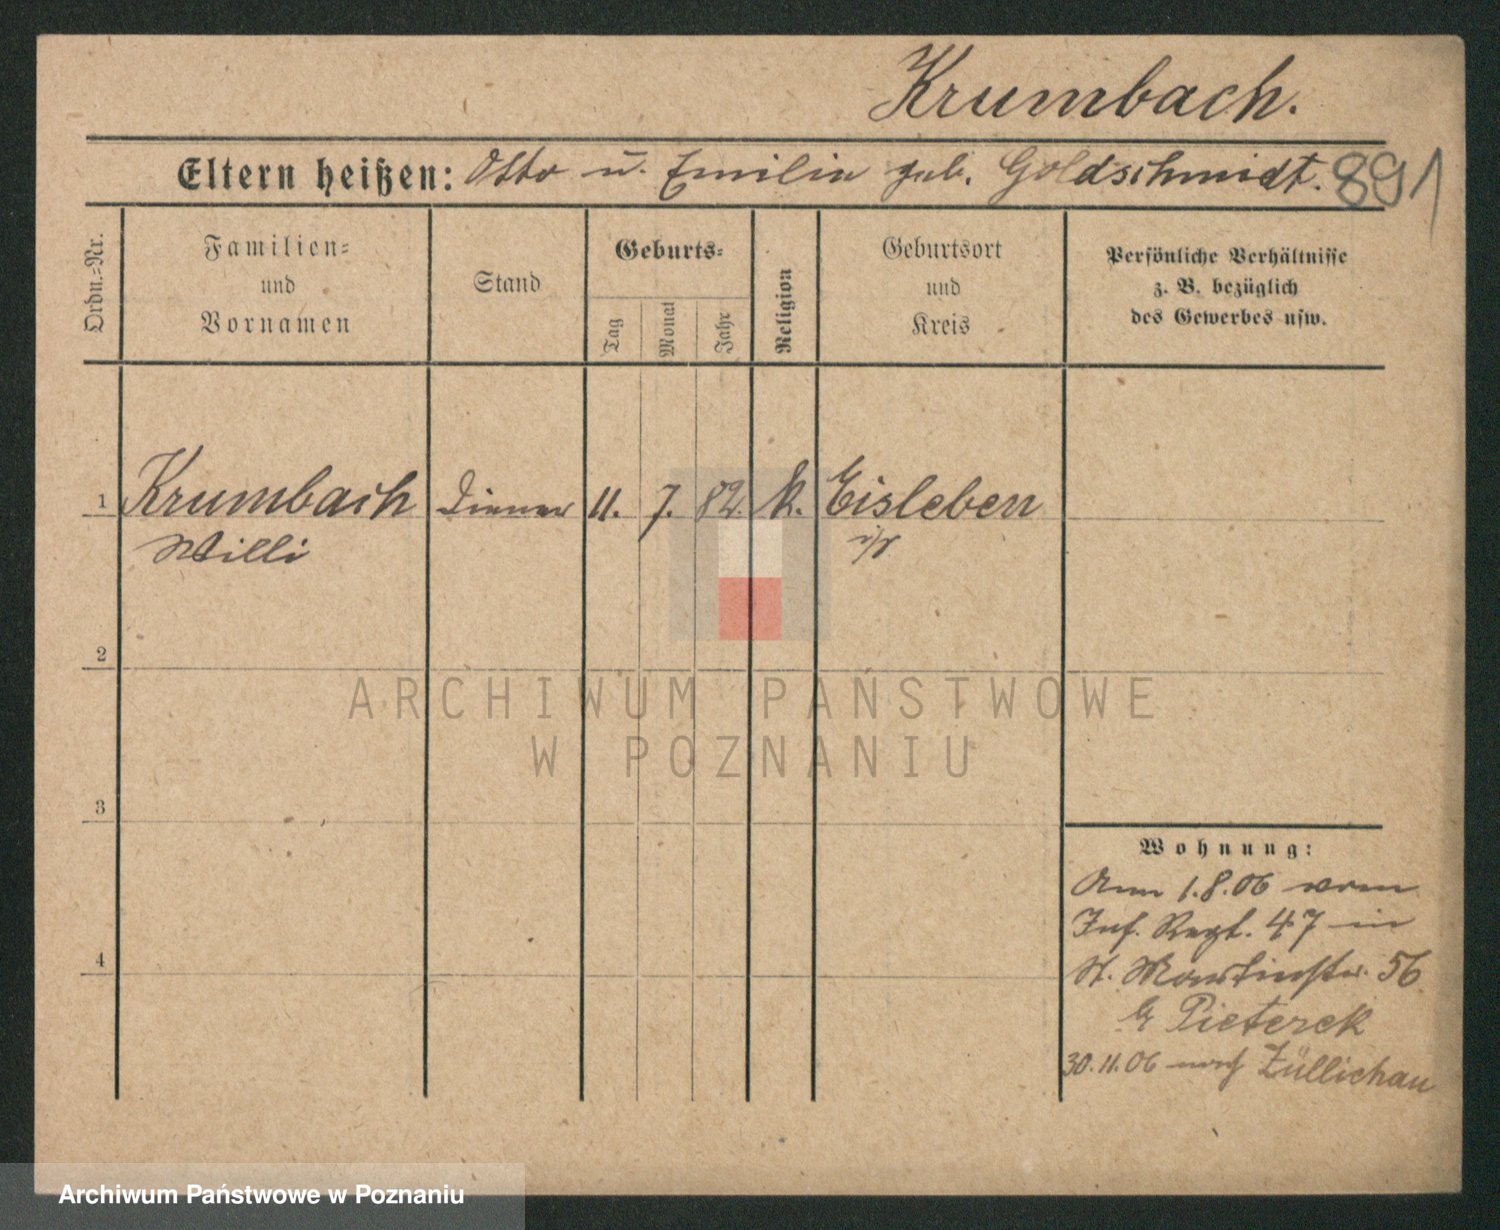 Krumbach.
Eltern heißen: Otto u. Emilie geb. Goldschmidt. 891
Ordn.=Nr.
Familien=
und
Vornamen
Stand
Geburts=
Tag
Monat
Jahr
Religion
Geburtsort
und
Kreis
Persönliche Verhältnisse
z. B. bezüglich
des Gewerbes usw.
1 Krumbach Diener 11. 7. 82. k. Eisleben
Willi
2
3
4
Wohnung:
Am 1.8.06 vom
Inf. Regt. 47 in
St. Martinstr. 56
Pieterek
30.11.06 nach Züllichau
ARCHIWUM PAŃSTWOWE
W POZNANIU
Archiwum Państwowe w Poznaniu